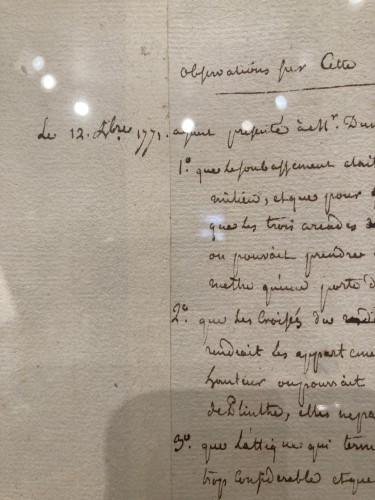 observations sur Cette
Le 12. Xbre 1771. ayant presenté à Mr. Du
1.º que le soubassement etait
milieu, et que pour
que les trois arcades
on pouvait prendre
metre qu'une porte d
2.º que les Croisés du
rendrait les appartemen
hauteur on pourrait
de Plinthe, elles
3.º que L'attique qui term
trop Considerable et que